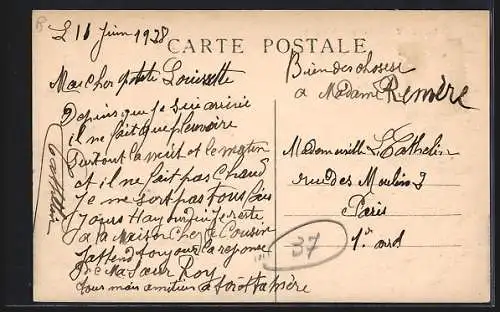 L 11 Juin 1928
CARTE POSTALE
Ma Cher petite Louisette
Depuis que Je suie arivé
il ne fait que pleuvoire
surtout la nuit et le matin
et il ne fait pas chaud
Je ne sort pas tous les
Jours Reste
a la Maison Cher le Cousin
J'attend toujour la reponce
de Ma Sœur Roy
tous mais amitier a toi et ta mère
Bien des choses
a Madame Remère
Mademoiselle L Cathelin
rue des Moulins 3
Paris
1er ard
37